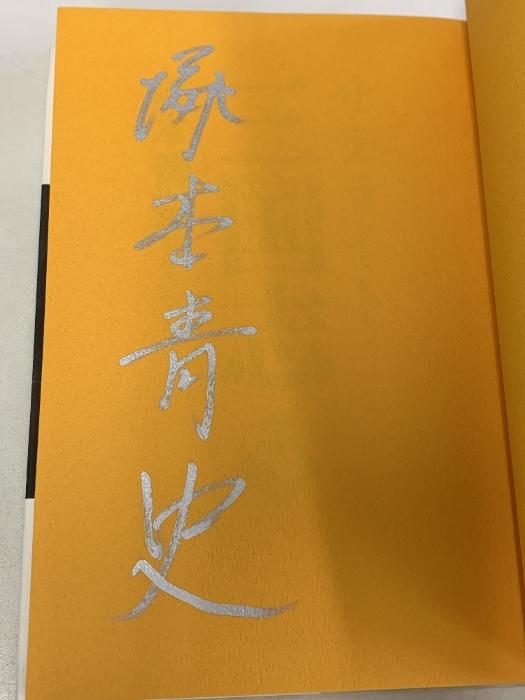 塚本青史